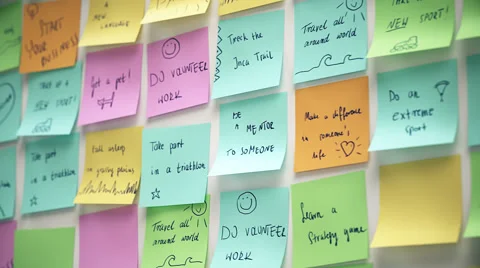 START
YOUR
BUSINESS
A NEW
LANGUAGE
Trek the
Inca Trail
Travel all
around world
NEW SPORT!
TAKE UP A
NEW SPORT!
Get a pet!
DO VOLUNTEER
WORK
BE A MENTOR
TO SOMEONE
Make a difference
in someone's
life
Do an
extreme
sport
Take part
in a triathlon
Take part
in a triathlon
Travel all
around world
DO VOLUNTEER
WORK
Learn a
strategy game